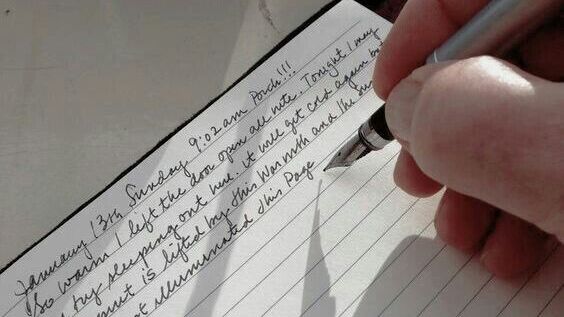 January 13th Sunday 9:02 am Porch!!!
So warm I left the door open all nite. Tonight I may
try sleeping out here. it will get cold again but
is lifted by this Warmth and the Sun
illuminated this Page